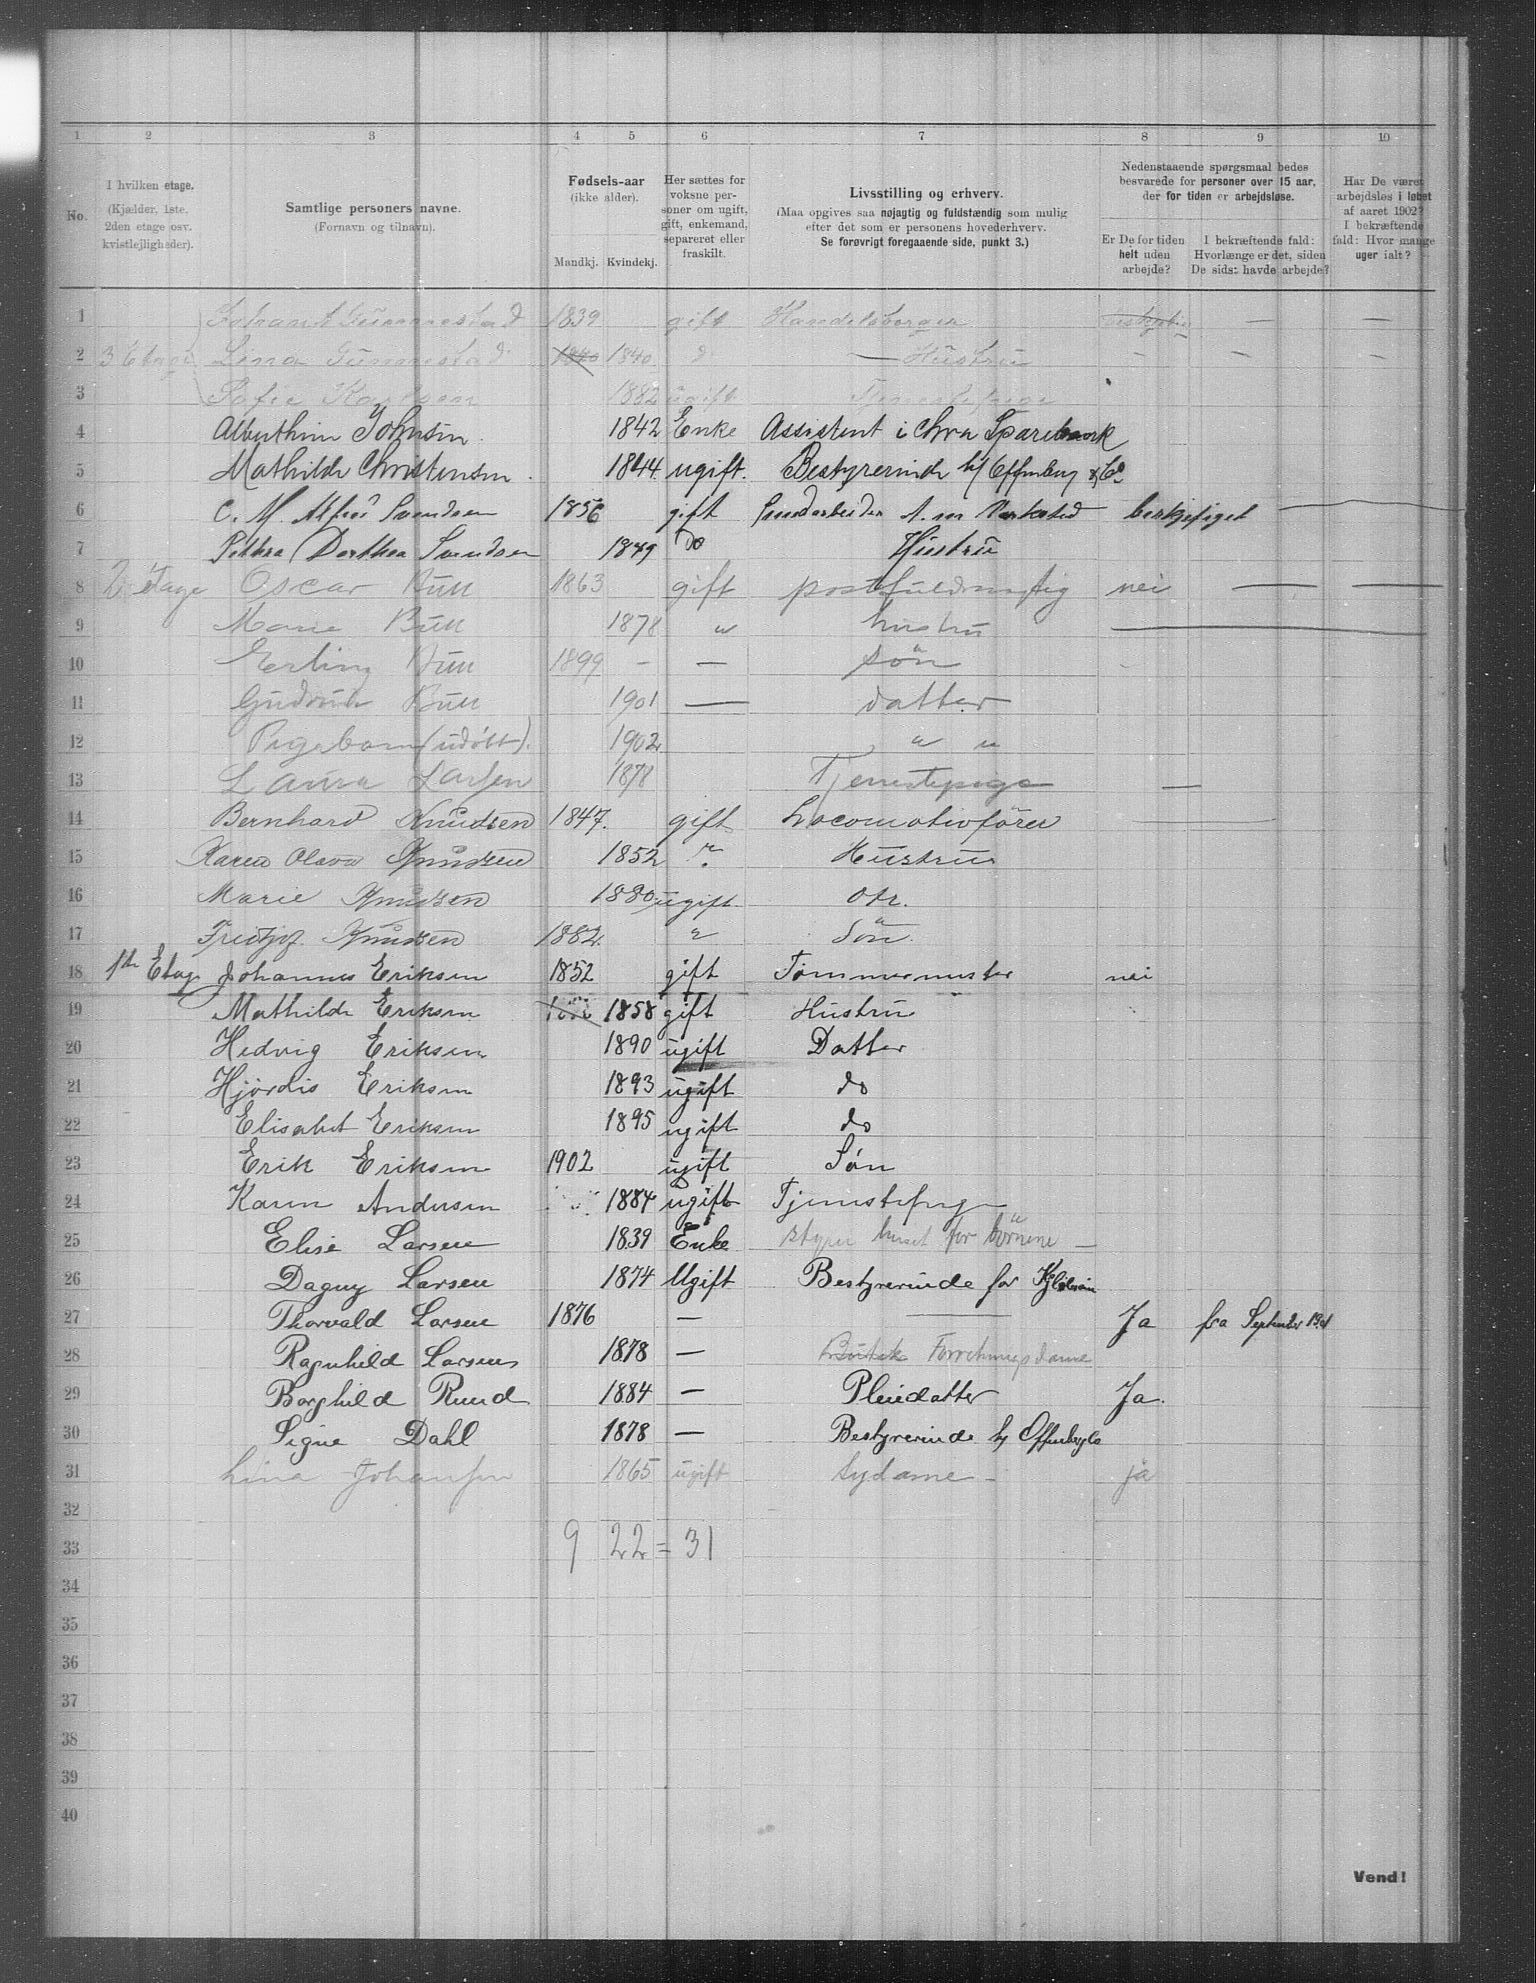 1 2 3 4 5 6 7 8 9 10
No.
I hvilken etage.
(Kjælder, 1ste.
2den etage osv.
kvistlejligheder).
Samtlige personers navne.
(Fornavn og tilnavn).
Fødsels-aar
(ikke alder).
Mandkj. Kvindekj.
Her sættes for
voksne per-
soner om ugift,
gift, enkemand,
separeret eller
fraskilt.
Livsstilling og erhverv.
(Maa opgives saa nøjagtig og fuldstændig som mulig
efter det som er personens hovederhverv.
Se forøvrigt foregaaende side, punkt 3.)
Nedenstaaende spørgsmaal bedes
besvarede for personer over 15 aar,
der for tiden er arbejdsløse.
Er De for tiden
helt uden
arbejde?
I bekræftende fald:
Hvorlænge er det, siden
De sidst havde arbejde?
Har De været
arbejdsløs i løbet
af aaret 1902?
I bekræftende
fald: Hvor mange
uger ialt?
1 Gunnestad 1839 gift Handelsborger — —
2 3 Etage Lina Gunnestad 1840 1840 d — Hustru - - -
3 Sofie Karlsen 1882 ugift Tjenestepige
4 Alberthine Johnsen 1842 Enke Assistent i Chra Sparebank
5 Mathilde Christensen 1844 ugift. Bestyrerinde h/ Offenberg & Co
6 C. M. Alfred Svendsen 1856 gift Verksted beskjefiget —
7 Pethra Dorthea Svendsen 1849 Do Hustru
8 2 Etage Oscar Bull 1863 gift postfuldmægtig nei — —
9 Marie Bull 1878 " hustru —
10 Erling Bull 1899 - — søn
11 Gudrun Bull 1901 — datter
12 Pigebarn (udøbt). 1902 " "
13 Laura Larsen 1878 Tjenestepige —
14 Bernhard Knudsen 1847. gift Locomotivfører
15 Karen Olava Knudsen 1852 " Hustru
16 Marie Knudsen 1880 ugift Dtr.
17 Fredtjof Knudsen 1882. " Søn
18 1ste Etage Johannes Eriksen 1852 gift Tømmermester nei
19 Mathilde Eriksen 1858 gift Hustru
20 Hedvig Eriksen 1890 ugift Datter
21 Hjørdis Eriksen 1893 ugift do
22 Elisabet Eriksen 1895 ugift do
23 Erik Eriksen 1902 ugift Søn
24 Karen Andersen 1884 ugift Tjenestepige
25 Elise Larsen 1839 Enke styrer huset for børnene —
26 Dagny Larsen 1874 Ugift Bestyrerinde for
27 Thorvald Larsen 1876 — — Ja fra September 1901
28 Ragnhild Larsen 1878 — Butik Forretningsdame
29 Borghild Ruud 1884 — Pleiedatter Ja.
30 Signe Dahl 1878 — Bestyrerinde h/ Offenbergs
31 Lina Johansen 1865 ugift Sydame - ja
32
33 9 22 = 31
34
35
36
37
38
39
40
Vend!